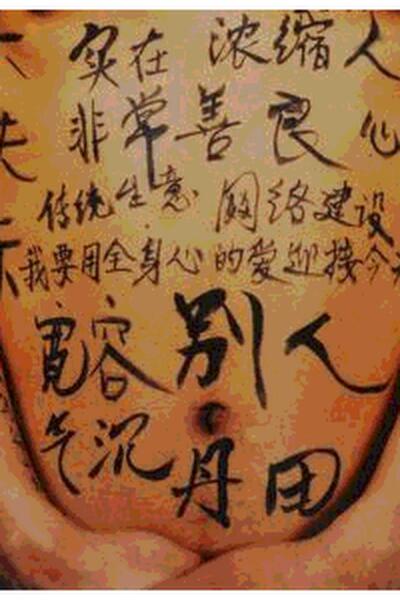 实在 浓缩人
非常善良 心
传统生意 网络建设
我要用全身心的爱迎接今
宽容别人
气沉丹田